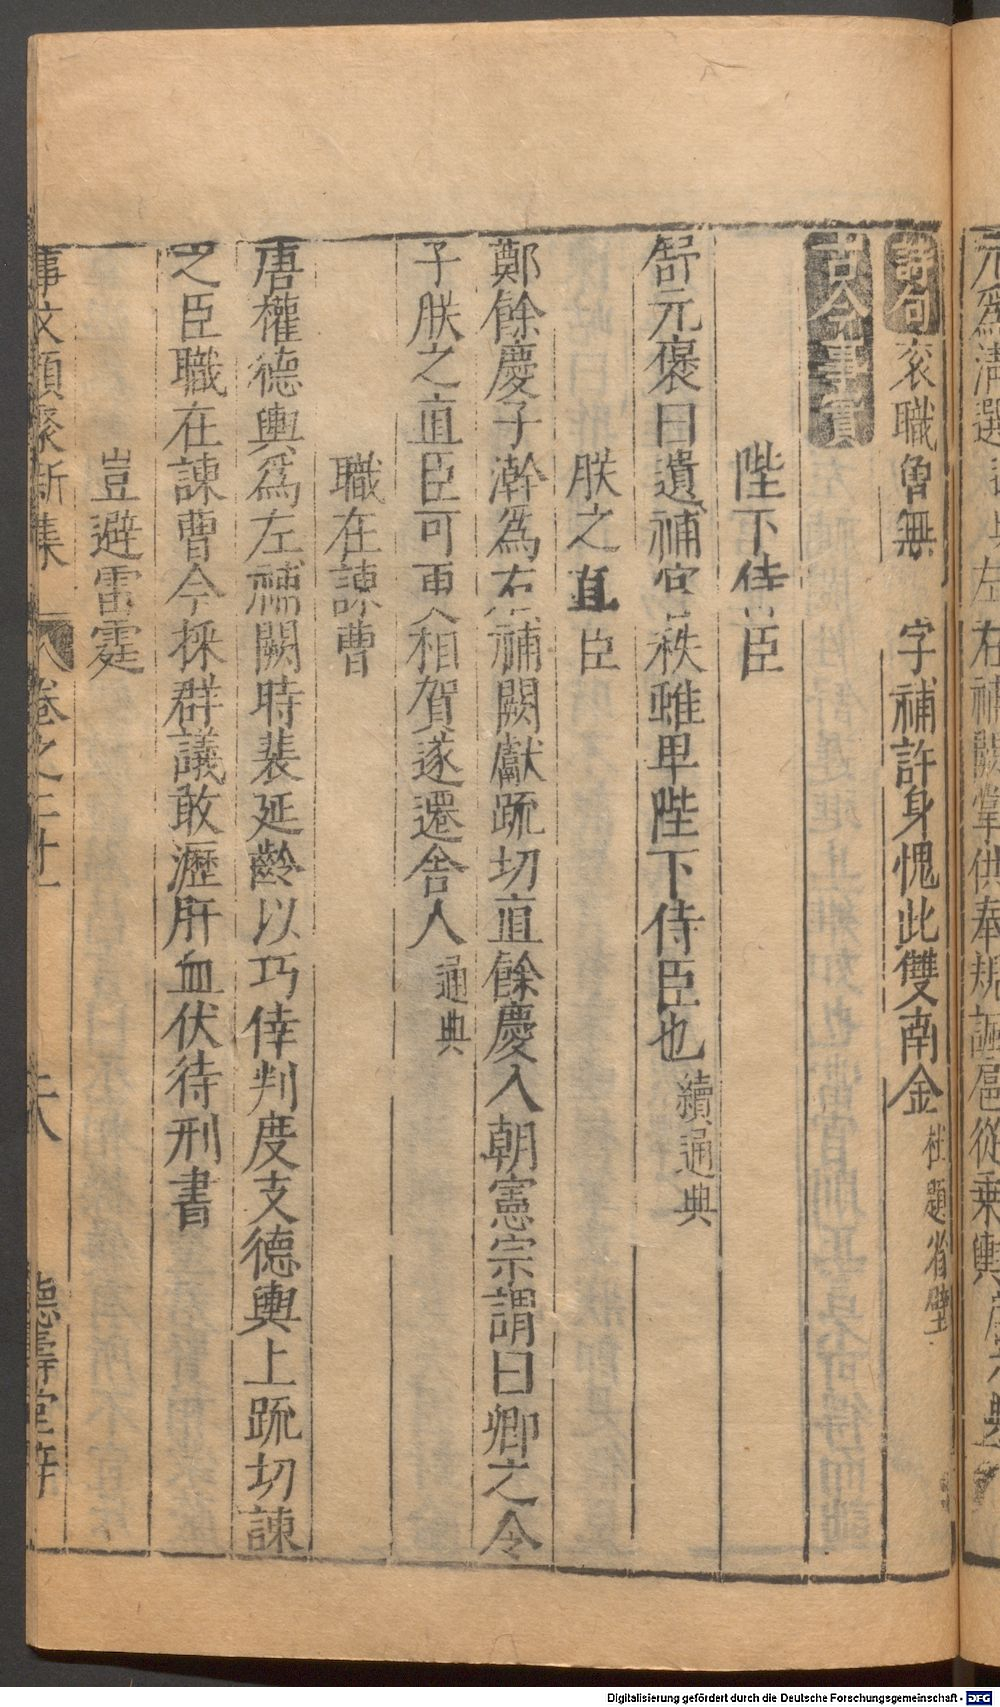 元爲清選
左右補闕掌供奉規諷扈從乘輿
詩句 衮職曾無 字補許身愧此雙南金 杜題省壁
古今事實
陛下侍臣
舒元褒曰遺補官秩雖卑陛下侍臣也 續通典
朕之直臣
鄭餘慶子澣爲右補闕獻疏切直餘慶入朝憲宗謂曰卿之令
子朕之直臣可更相賀遂遷舍人 通典
職在諫曹
唐權德輿爲左補闕時裴延齡以巧倖判度支德輿上疏切諫
之臣職在諫曹今採群議敢瀝肝血伏待刑書
豈避雷霆
事文類聚新集 卷之二十 德壽堂
Digitalisierung gefördert durch die Deutsche Forschungsgemeinschaft - DFG